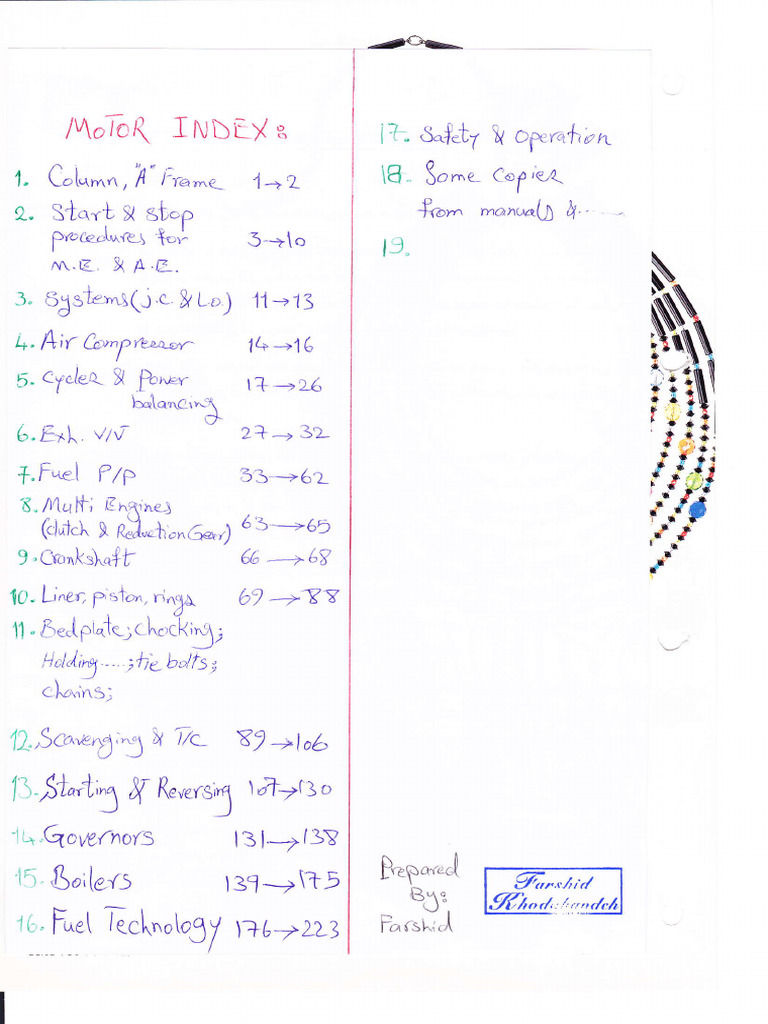 MOTOR INDEX:
1. Column, "A" Frame 1→2
2. Start & stop
procedures for 3→10
M.E. & A.E.
3. Systems (j.c. & L.o.) 11→13
4. Air Compressor 14→16
5. Cycles & Power 17→26
balancing
6. Exh. V/V 27→32
7. Fuel P/P 33→62
8. Multi Engines
(clutch & Reduction Gear) 63→65
9. Crankshaft 66→68
10. Liner, piston, rings 69→88
11. Bedplate; chocking;
Holding.....; tie bolts;
chains;
12. Scavenging & T/C 89→106
13. Starting & Reversing 107→130
14. Governors 131→138
15. Boilers 139→175
16. Fuel Technology 176→223
17. Safety & Operation
18. Some Copies
from manuals &......
19.
Prepared
By:
Farshid
Farshid
Khodabandeh